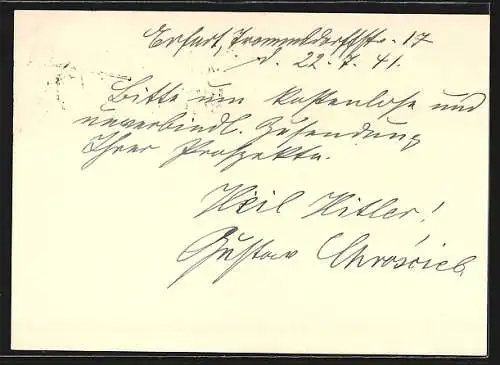 Erfurt, Trommsdorffstr. 17
d. 22.7.41.
Bitte um kostenlose und
unverbindl. Zusendung
Ihrer Prospekte.
Heil Hitler!
Gustav